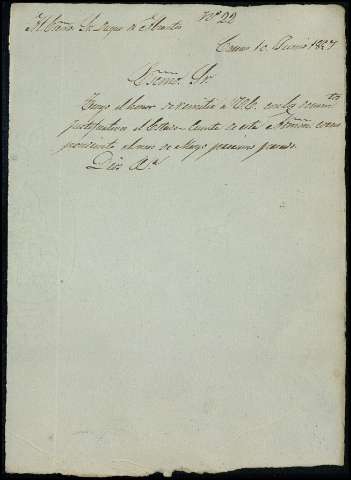 Al Exmo. Sr. Duque de
Nº 22
10 Junio 1827
Exmo. Sr.
Tengo el honor de remitir a V.E. con los docum.tos
justificativos el Estado-Cuenta de esta Admon. corres
pondiente al mes de Mayo proximo pasado.
Dios &.a